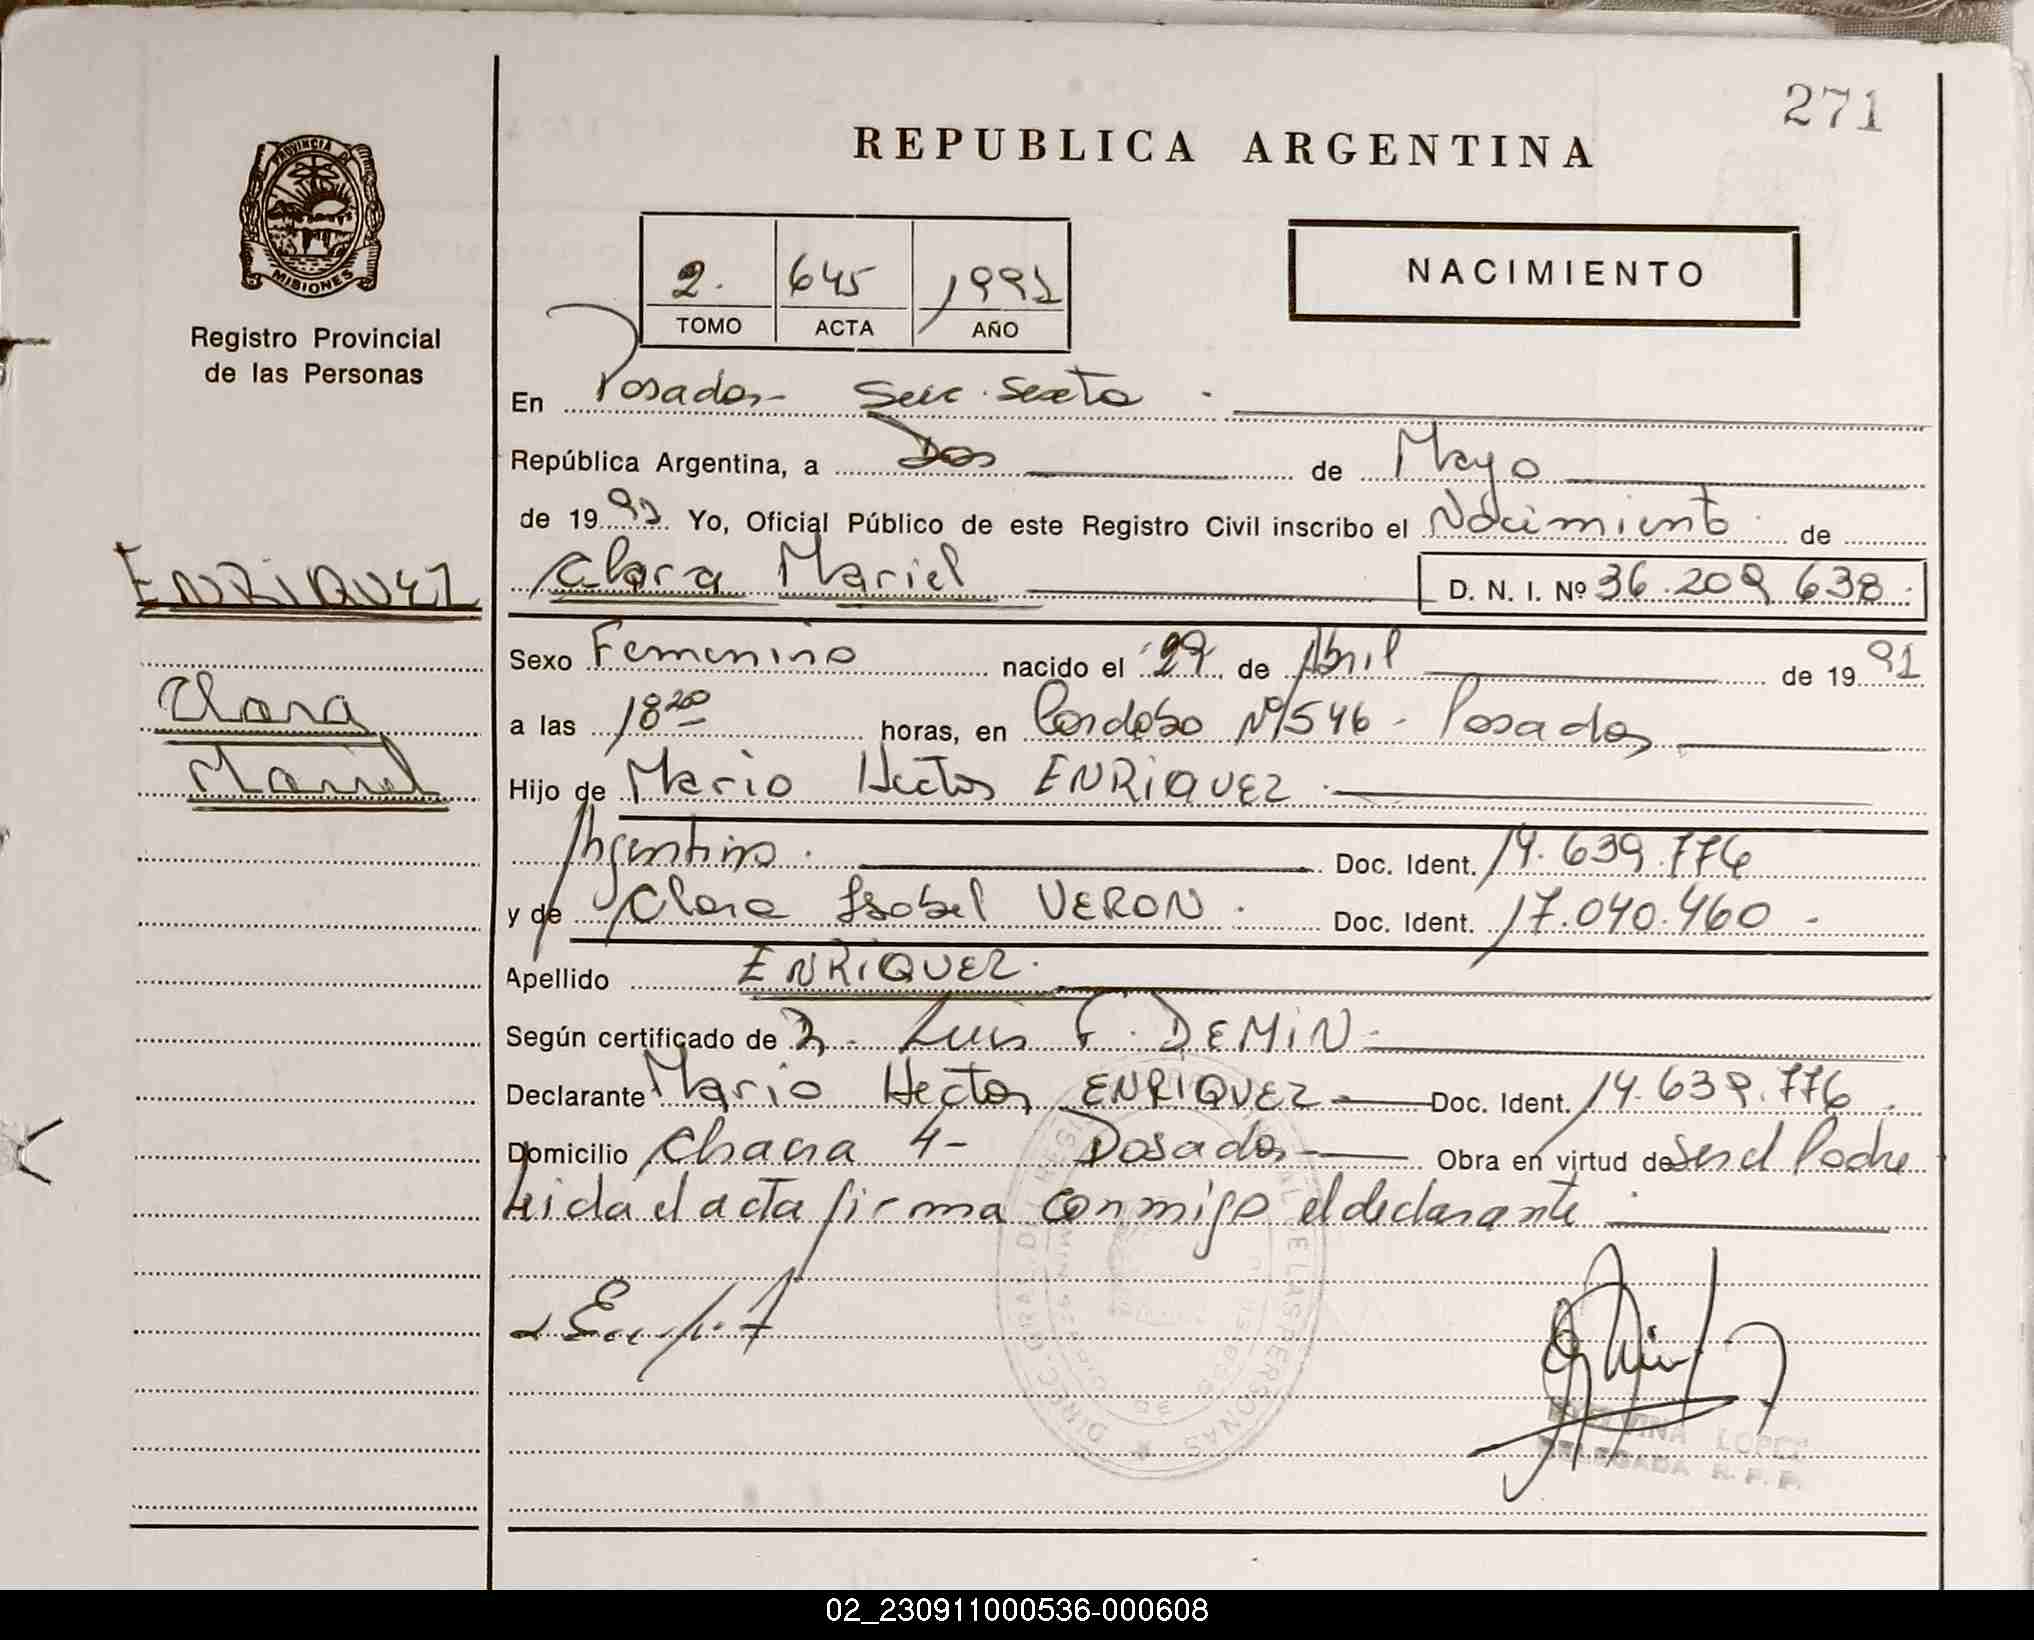 271
REPUBLICA ARGENTINA
PROVINCIA DE
MISIONES
Registro Provincial
de las Personas
2. 645 1991
TOMO ACTA AÑO
NACIMIENTO
En Posadas Secc. Sexta
República Argentina, a Dos de Mayo
de 1991 Yo, Oficial Público de este Registro Civil inscribo el Nacimiento de
ENRIQUEZ
Clara Mariel D. N. I. Nº 36.209.638
Clara
Mariel
Sexo Femenino nacido el 29 de Abril de 1991
a las 18 20 horas, en Cordoba Nº 1546 - Posadas
Hijo de Mario Hector ENRIQUEZ
Argentino. Doc. Ident. 14.639.776
y de Clara Isabel VERON. Doc. Ident. 17.040.460 -
Apellido ENRIQUEZ.
Según certificado de Luis F. DEMIN -
Declarante Mario Hector ENRIQUEZ Doc. Ident. 14.639.776
Domicilio Chacra 4 - Posadas Obra en virtud de Ser el Padre
Leida el acta firma conmigo el declarante
LOPEZ
DELEGADA R. P. P.
02_230911000536-000608